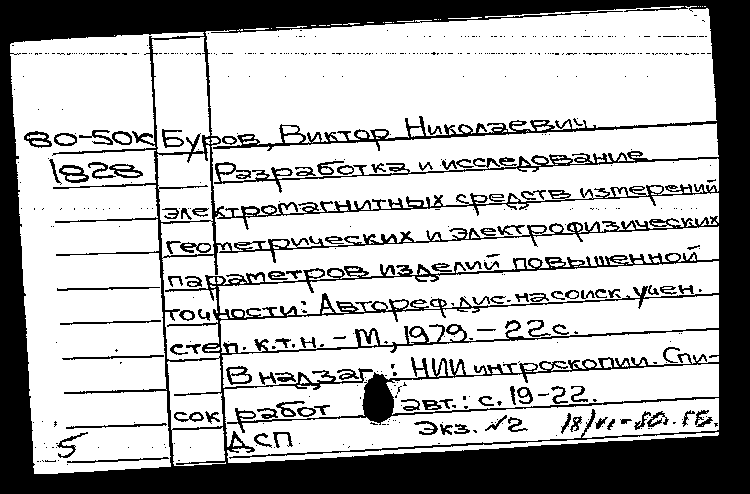 80-50к Буров, Виктор Николаевич.
1828 Разработка и исследование
электромагнитных средств измерений
геометрических и электрофизических
параметров изделий повышенной
точности: Автореф. дис. на соиск. учен.
степ. к.т.н. - М., 1979. - 22 с.
В надзаг.: НИИ интроскопии. Спи-
сок работ авт.: с. 19-22.
ДСП Экз. №2 18/VI-80г.
5